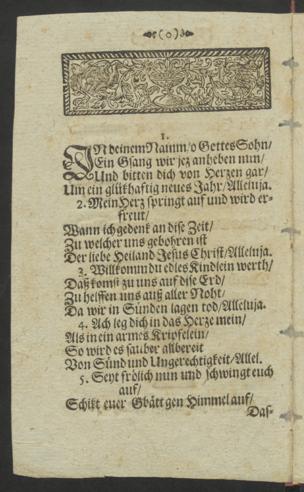 (0)
1.
IN deinem Namm/ o Gottes Sohn/
Ein Gsang wir jez anheben nun/
Und bitten dich von Herzen gar/
Um ein glükhaftig neues Jahr/ Alleluja.
2. Mein Herz springt auf und wird er-
freut/
Wann ich gedenk an dise Zeit/
Zu welcher uns gebohren ist
Der liebe Heiland Jesus Christ/ Alleluja.
3. Willkomm du edles Kindlein werth/
Daß komst zu uns auf dise Erd/
Zu helffen uns auß aller Noht/
Da wir in Sünden lagen tod/ Alleluja.
4. Ach leg dich in das Herze mein/
Als in ein armes Kripfelein/
So wird es sauber allbereit
Von Sünd und Ungerechtigkeit/ Allel.
5. Seyt frölich nun und schwingt euch
auf/
Schikt euer Gbätt gen Himmel auf/
Das-